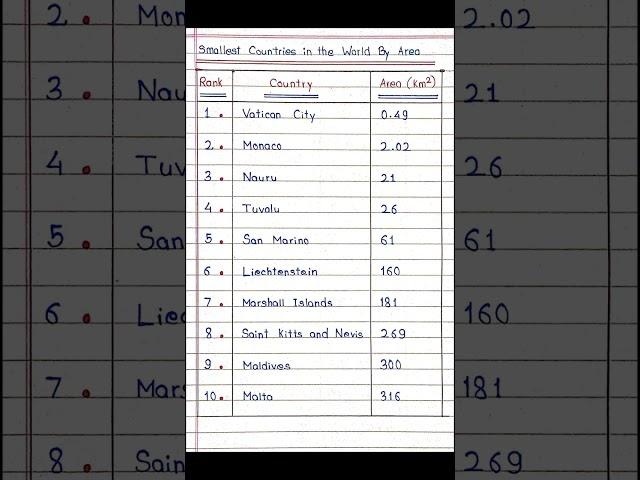 Smallest Countries in the World By Area
Rank Country Area (Km²)
1. Vatican City 0.49
2. Monaco 2.02
3. Nauru 21
4. Tuvalu 26
5. San Marino 61
6. Liechtenstein 160
7. Marshall Islands 181
8. Saint Kitts and Nevis 269
9. Maldives 300
10. Malta 316
2. Mon 2.02
3. Nau 21
4. Tuv 26
5. San 61
6. Liec 160
7. Mars 181
8. Sain 269